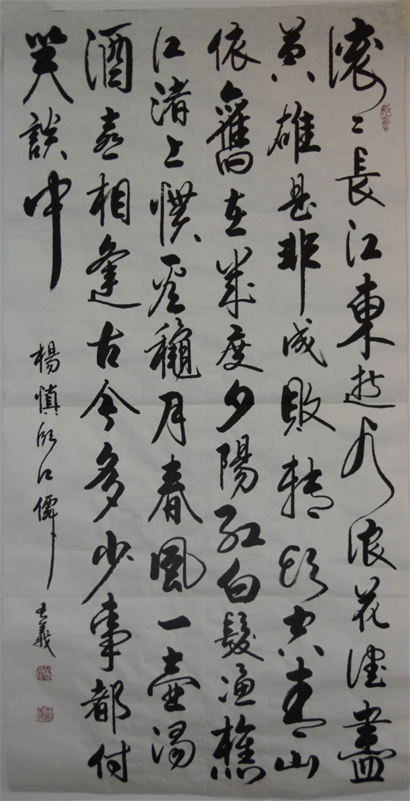 滚〻長江東逝水浪花淘盡
英雄是非成敗轉頭空青山
依舊在幾度夕陽紅白髮漁樵
江渚上慣看穐月春風一壺濁
酒喜相逢古今多少事都付
笑談中
楊慎臨江僊
義